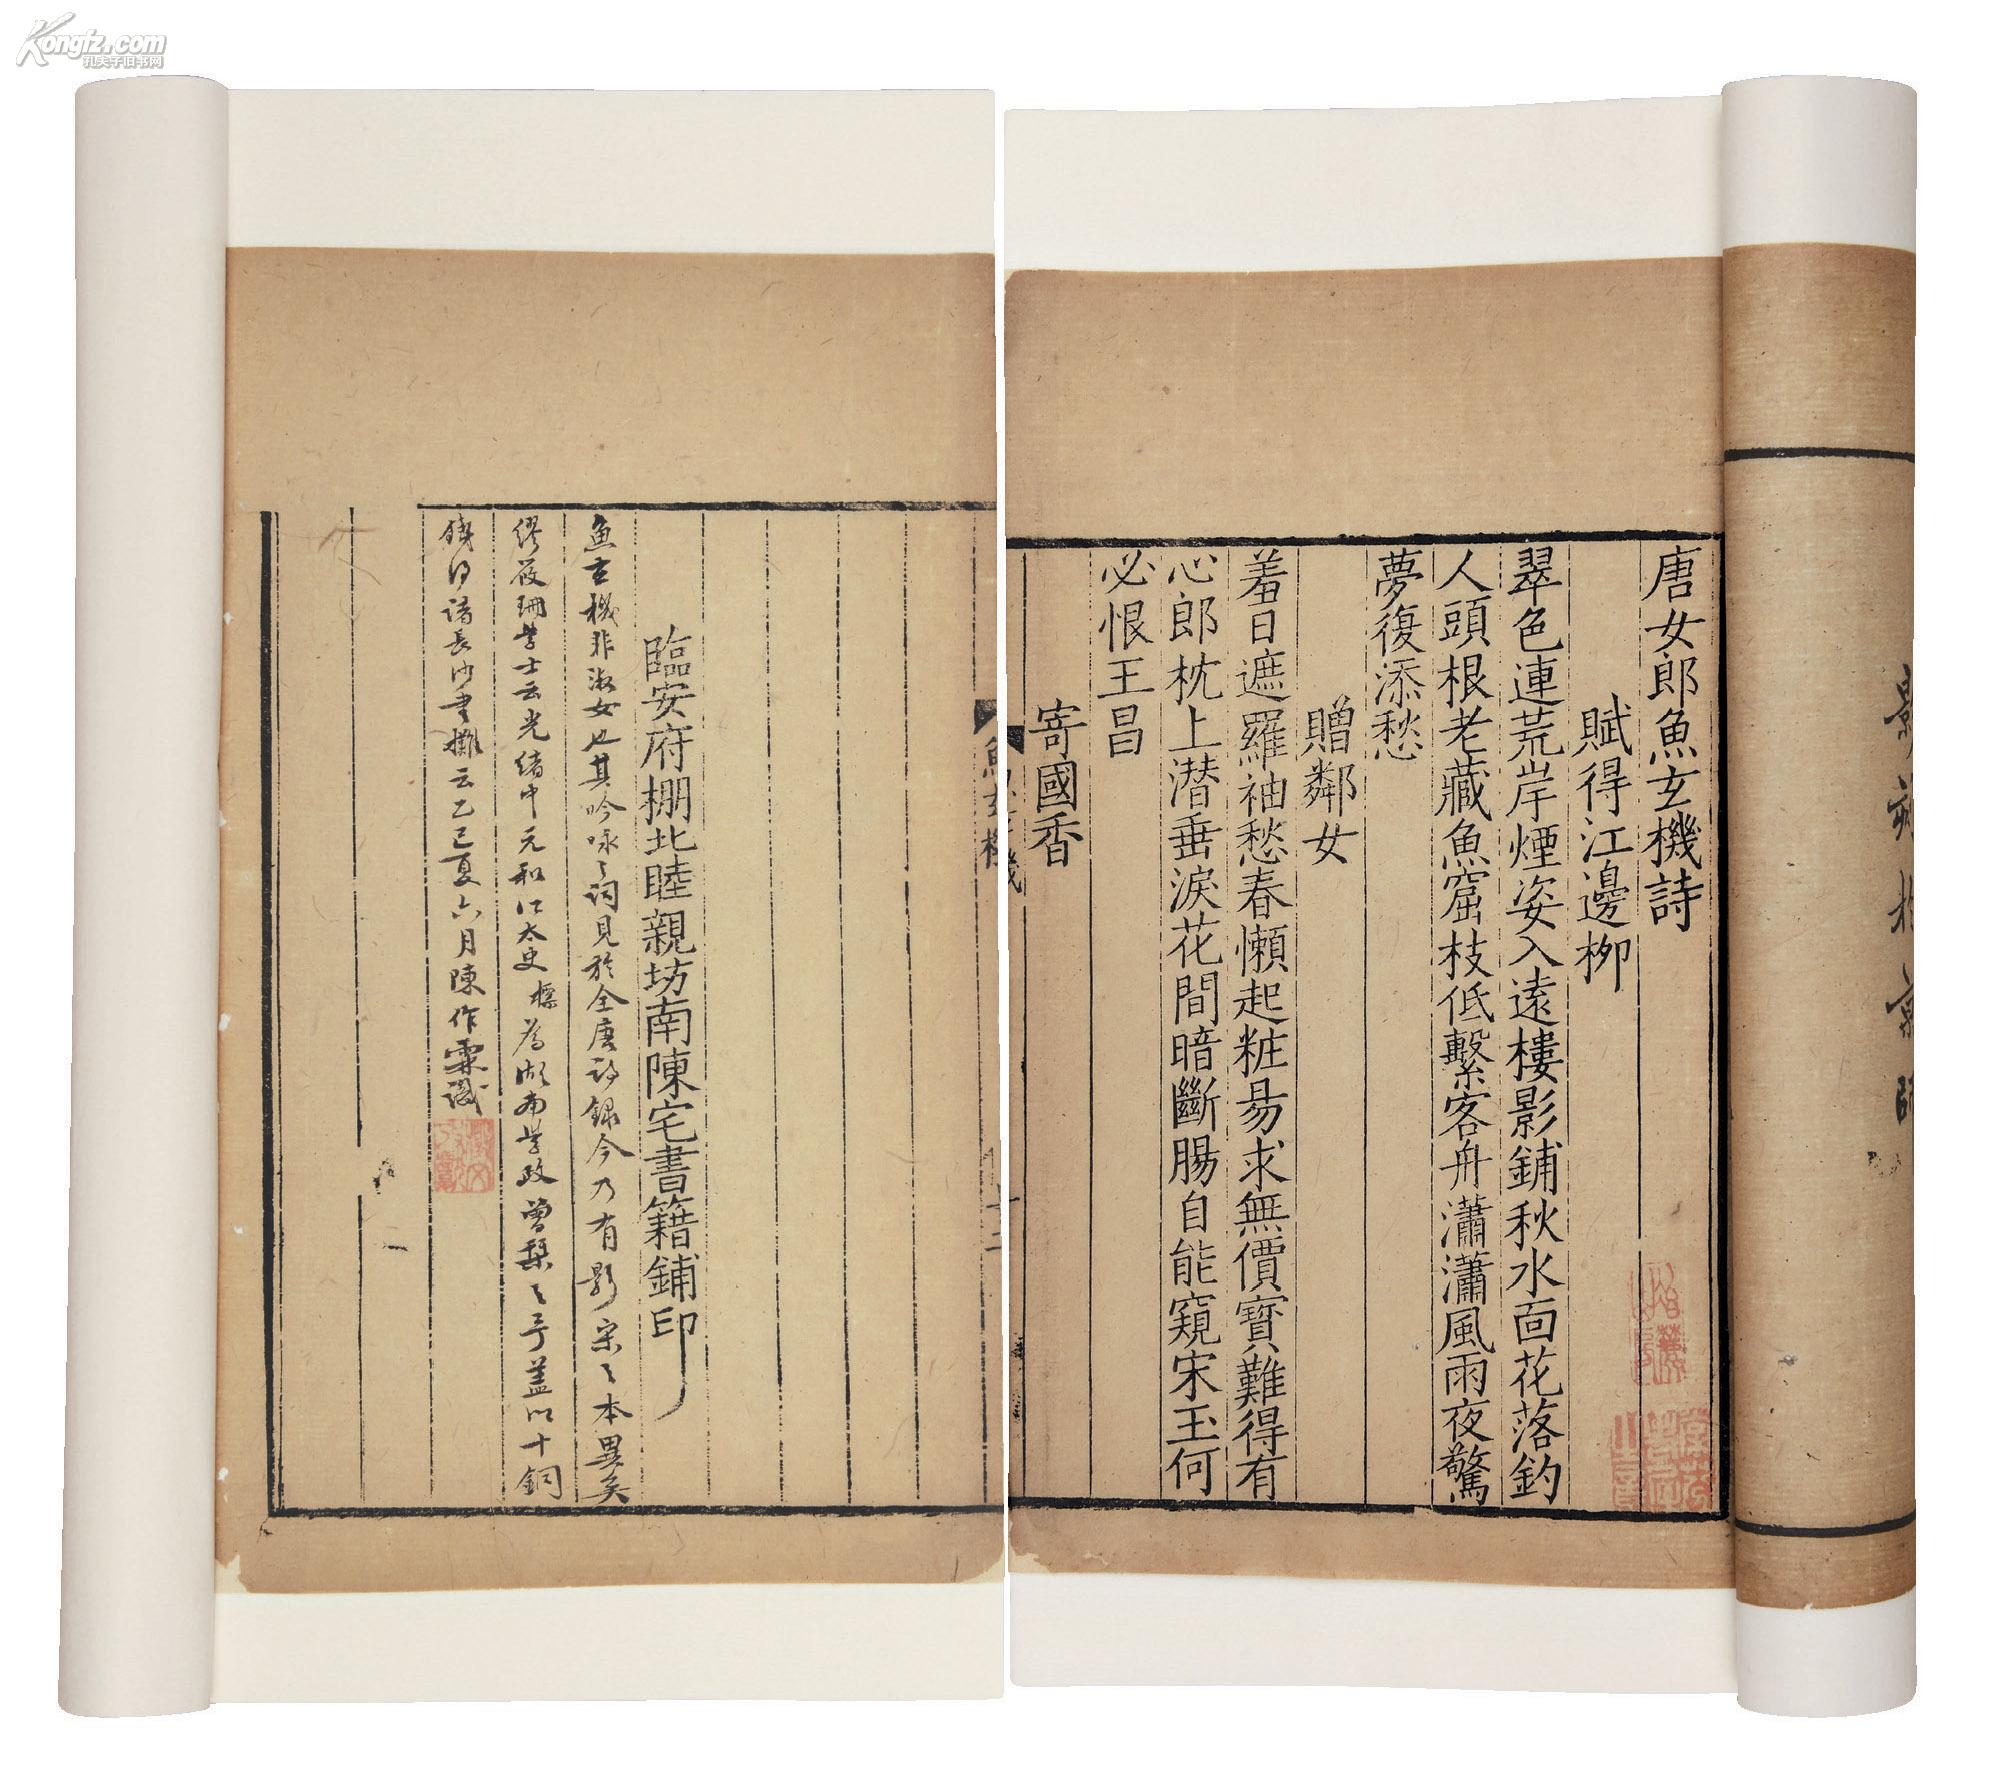 Kongfz.com
孔夫子旧书网
唐女郎魚玄機詩
賦得江邊柳
翠色連荒岸煙姿入遠樓影鋪秋水面花落釣
人頭根老藏魚窟枝低繫客舟瀟瀟風雨夜驚
夢復添愁
贈鄰女
羞日遮羅袖愁春懶起粧易求無價寶難得有
心郎枕上潛垂淚花間暗斷腸自能窺宋玉何
必恨王昌
寄國香
魚玄機
十二
臨安府棚北睦親坊南陳宅書籍鋪印
魚玄機非淑女也其吟咏之詞見於全唐詩録今乃有影宋之本異矣
繆筱珊學士云光緒中元和江太史標為湖南學政曾梨之予蓋以十銅
錢得諸長沙書攤云乙巳夏六月陳作霖識